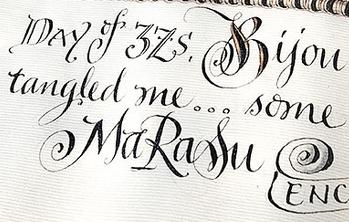 Day of 3Zs. Bijou
tangled me... some
MaRaSu
ENC